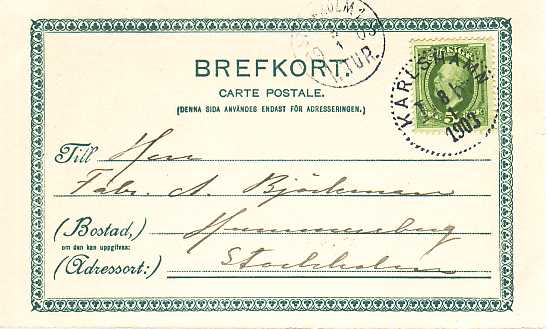 BREFKORT
CARTE POSTALE.
(DENNA SIDA ANVÄNDES ENDAST FÖR ADRESSERINGEN.)
KARLSHAMN
1903
TUR.
Till Herr
Fabr. A. Björkman
(Bostad,)
om den kan uppgifvas:
(Adressort:) Stockholm